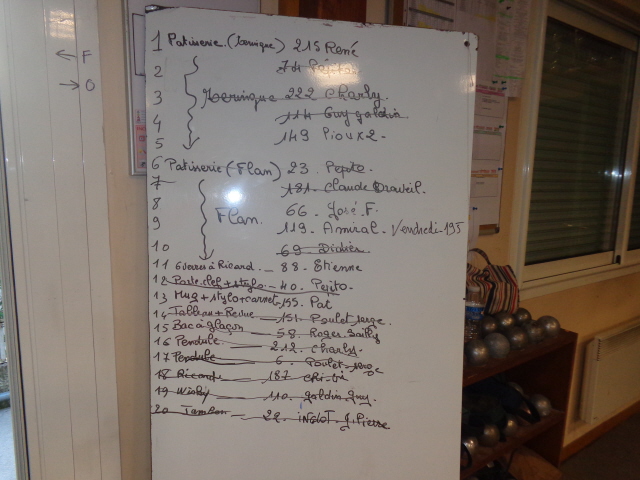 F
O
1 Patisserie. (Meringue) 215 René
2 74 Pépito
3 Meringue 222 Charly.
4 114 Guy galdin
5 149 Pioux 2 -
6 Patisserie (Flan) 23. Pepito.
7 181 - Claude Draveil.
8 Flan. 66 - José. F.
9 119 - Amiral - Vendredi 195
10 69 Didier
11 6 verres à Ricard. - 88 - Etienne
12 Porte clef + stylo - 40. Pepito.
13 Mug + stylo + carnet - 155. Pat
14 Tableau + Revue - 151. Poulet serge.
15 Bac à glaçon - 58. Roger Bailly
16 Pendule - 212 - Charly.
17 Pendule - 6 - Poulet
18 Ricard - 187
19 - 110. galdin guy.
20 Jambon - 22. J. Pierre